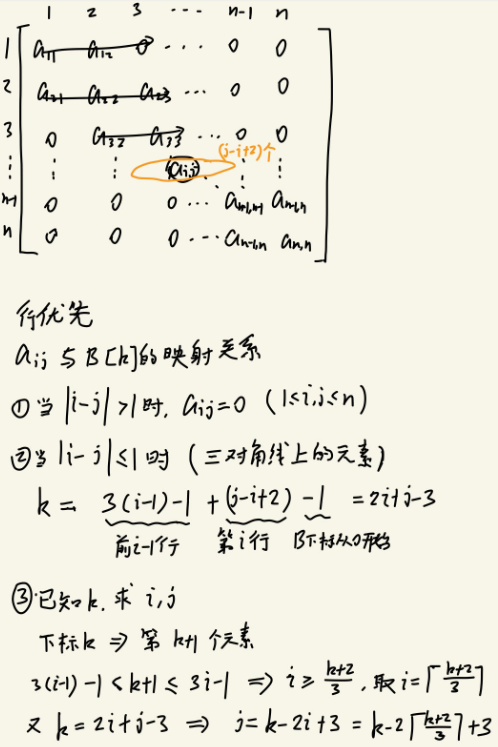 1 2 3 ⋯ n-1 n
1 a₁₁ a₁₂ 0 ⋯ 0 0
2 a₂₁ a₂₂ a₂₃ ⋯ 0 0
3 0 a₃₂ a₃₃ ⋯ 0 0
(j-i+2)个
⋮ ⋮ ⋮ aᵢ,ⱼ ⋮ ⋮
n-1 0 0 0 ⋯ aₙ₋₁,ₙ₋₁ aₙ₋₁,ₙ
n 0 0 0 ⋯ aₙ₋₁,ₙ aₙ,ₙ
行优先
aᵢⱼ 与 B[k]的映射关系
①当 |i-j|>1时, aᵢⱼ=0 (1≤i,j≤n)
②当 |i-j|≤1时 (三对角线上的元素)
k = 3(i-1)-1 + (j-i+2) -1 = 2i+j-3
前i-1行 第i行 B下标从0开始
③已知k, 求 i,j
下标k ⇒ 第 k+1 个元素
3(i-1)-1 < k+1 ≤ 3i-1 ⇒ i ≥ (k+2)/3, 取 i=⌈(k+2)/3⌉
又 k=2i+j-3 ⇒ j=k-2i+3 = k-2⌈(k+2)/3⌉+3